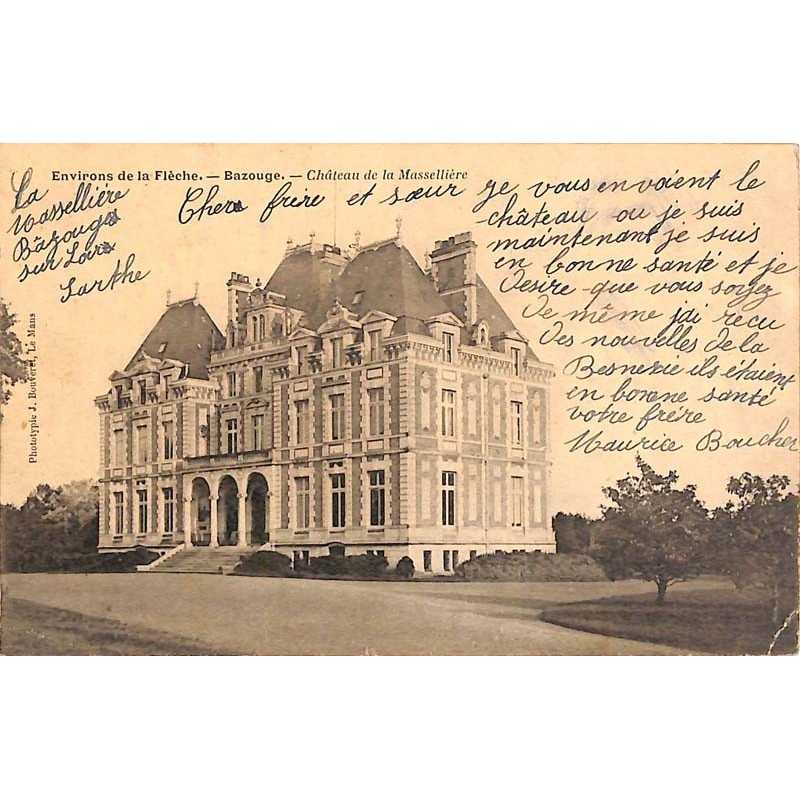 Environs de la Flèche. — Bazouge. — Château de la Massellière
La
Massellière
Bazouge
sur Loir
Sarthe
Chers frère et sœur je vous envoient le
château ou je suis
maintenant je suis
en bonne santé et je
desire que vous soyez
de même jai recu
des nouvelles de la
Besnerie ils étaient
en bonne santé
votre frére
Maurice Boucher
Phototypie J. Bouveret, Le Mans